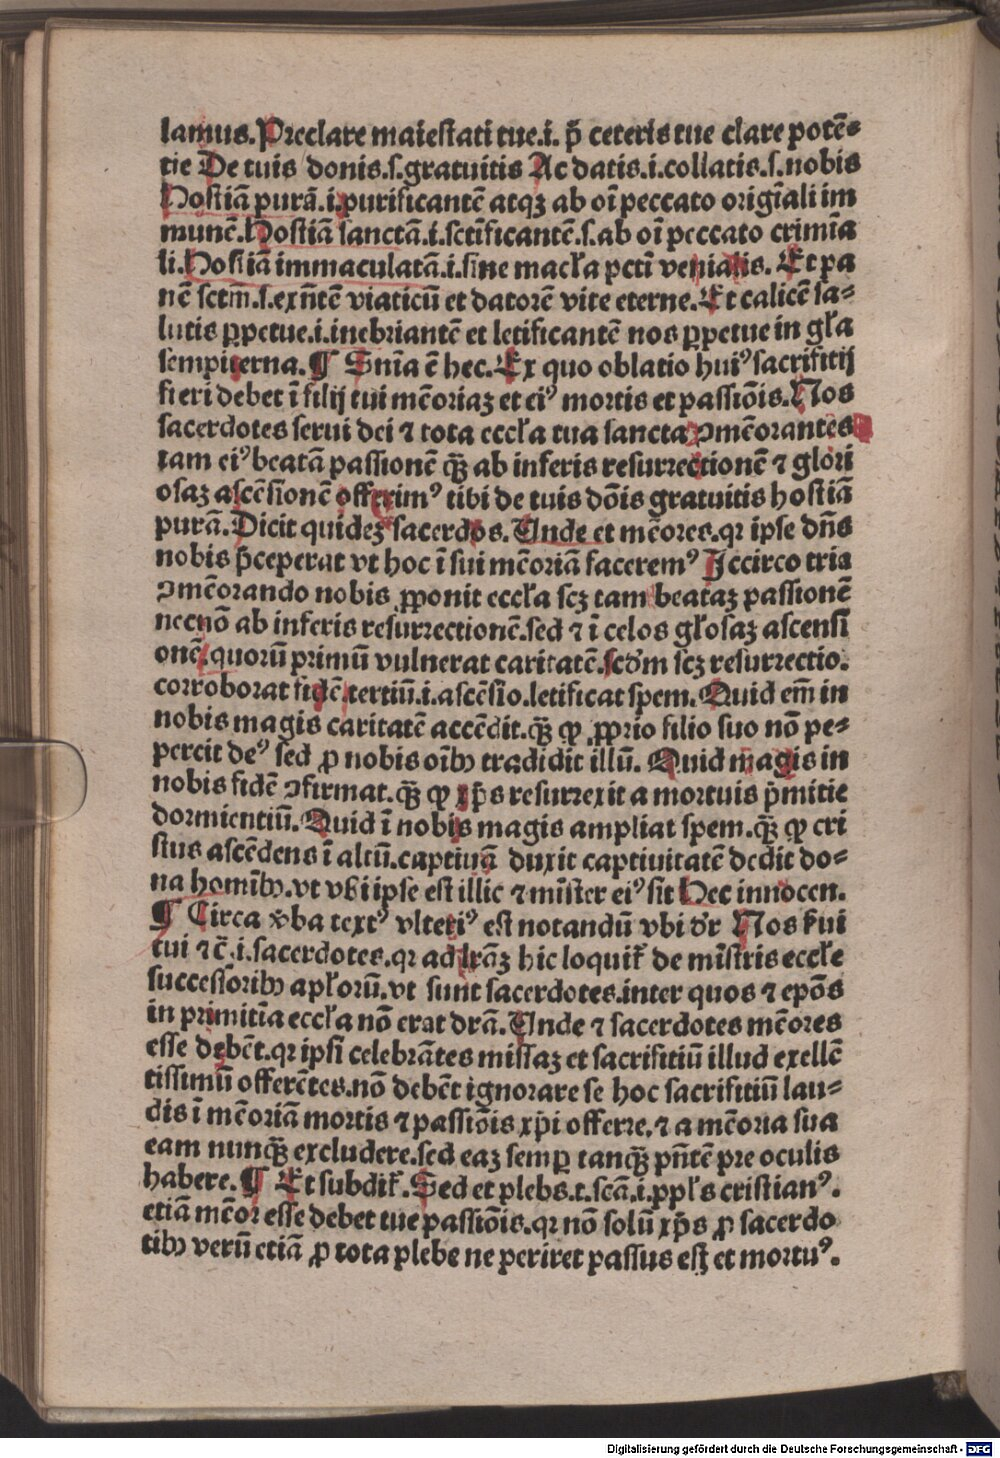 lamus.Preclare maiestati tue.i. p̄ ceteris tue clare potē⸗
tie De tuis donis.s.gratuitis Ac datis.i.collatis.s.nobis
Hostiā purā.i.purificantē atqꝫ ab oī peccato origīali im
munē.Hostiā sanctā.i.sctīficantē.s.ab oī peccato crimīa
li.Hostiā immaculatā.i.sine macła pctī venialis. Et pa
nē sctm̄.s.exn̄tē viaticū et datorē vite eterne.Et calicē sa⸗
lutis ꝑpetue.i.inebriantē et letificantē nos ꝑpetue in gła
sempiterna.¶ Snīa ē hec.Ex quo oblatio huiꝰ sacrifitij
fieri debet ī filij tui mēoriaꝫ et eiꝰ mortis et passiōis.Nos
sacerdotes serui dei ⁊ tota eccła tua sancta ꝯmēorantes
tam eiꝰ beatā passionē qꝫ̄ ab inferis resurrectionē ⁊ glori
osaꝫ ascēsionē offerimꝰ tibi de tuis dōis gratuitis hostiā
purā.Dicit quideꝫ sacerdos.Unde et mēores.qꝛ ipse dn̄s
nobis p̄ceperat vt hoc ī sui mēoriā faceremꝰ Jccirco tria
ꝯmēorando nobis ꝓponit eccła scꝫ tam beataꝫ passionē
necnō ab inferis resurrectionē.sed ⁊ ī celos głosaꝫ ascensi
onē.quorū primū vulnerat caritatē.scd̄m scꝫ resurrectio.
corroborat fidē.tertiū.i.ascēsio.letificat spem.Quid em̄ in
nobis magis caritatē accēdit.qꝫ̄ ꝙ ꝓprio filio suo nō pe⸗
percit deꝰ sed ꝓ nobis oībꝫ tradidit illū. Quid magis in
nobis fidē ꝯfirmat.qꝫ̄ ꝙ xp̄s resurrexit a mortuis p̄mitie
dormientiū.Quid ī nobis magis ampliat spem.qꝫ̄ ꝙ cri
stus ascēdens ī altū.captiuā duxit captiuitatē dedit do⸗
na homībꝫ.vt vbi ipse est illic ⁊ mīster eiꝰ sit Hec innocen.
¶ Circa v̄ba textꝰ vlteriꝰ est notandū vbi dr̄ Nos s̄ui
tui ⁊ c̄.i.sacerdotes.qꝛ ad lrāꝫ hic loquit̄ de mīstris eccłe
successoribꝫ apłorū.vt sunt sacerdotes.inter quos ⁊ epōs
in primitīa eccła nō erat drā.Unde ⁊ sacerdotes mēores
esse debēt.qꝛ ipsi celebrātes missaꝫ et sacrifitiū illud exellē
tissimū offerētes.nō debēt ignorare se hoc sacrifitiū lau⸗
dis ī mēoriā mortis ⁊ passiōis xp̄i offerre.⁊ a mēoria sua
eam nunqꝫ̄ excludere.sed eaꝫ semꝑ tanqꝫ̄ pn̄tē pre oculis
habere.¶ Et subdit̄.Sed et plebs.t.scā.i.ppl's cristianꝰ.
etiā mēor esse debet tue passiōis.qꝛ nō solū xp̄s ꝓ sacerdo
tibꝫ verū etiā ꝓ tota plebe ne periret passus est et mortuꝰ.
Digitalisierung gefördert durch die Deutsche Forschungsgemeinschaft - DFG